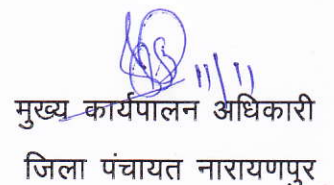 11/11
मुख्य कार्यपालन अधिकारी
जिला पंचायत नारायणपुर